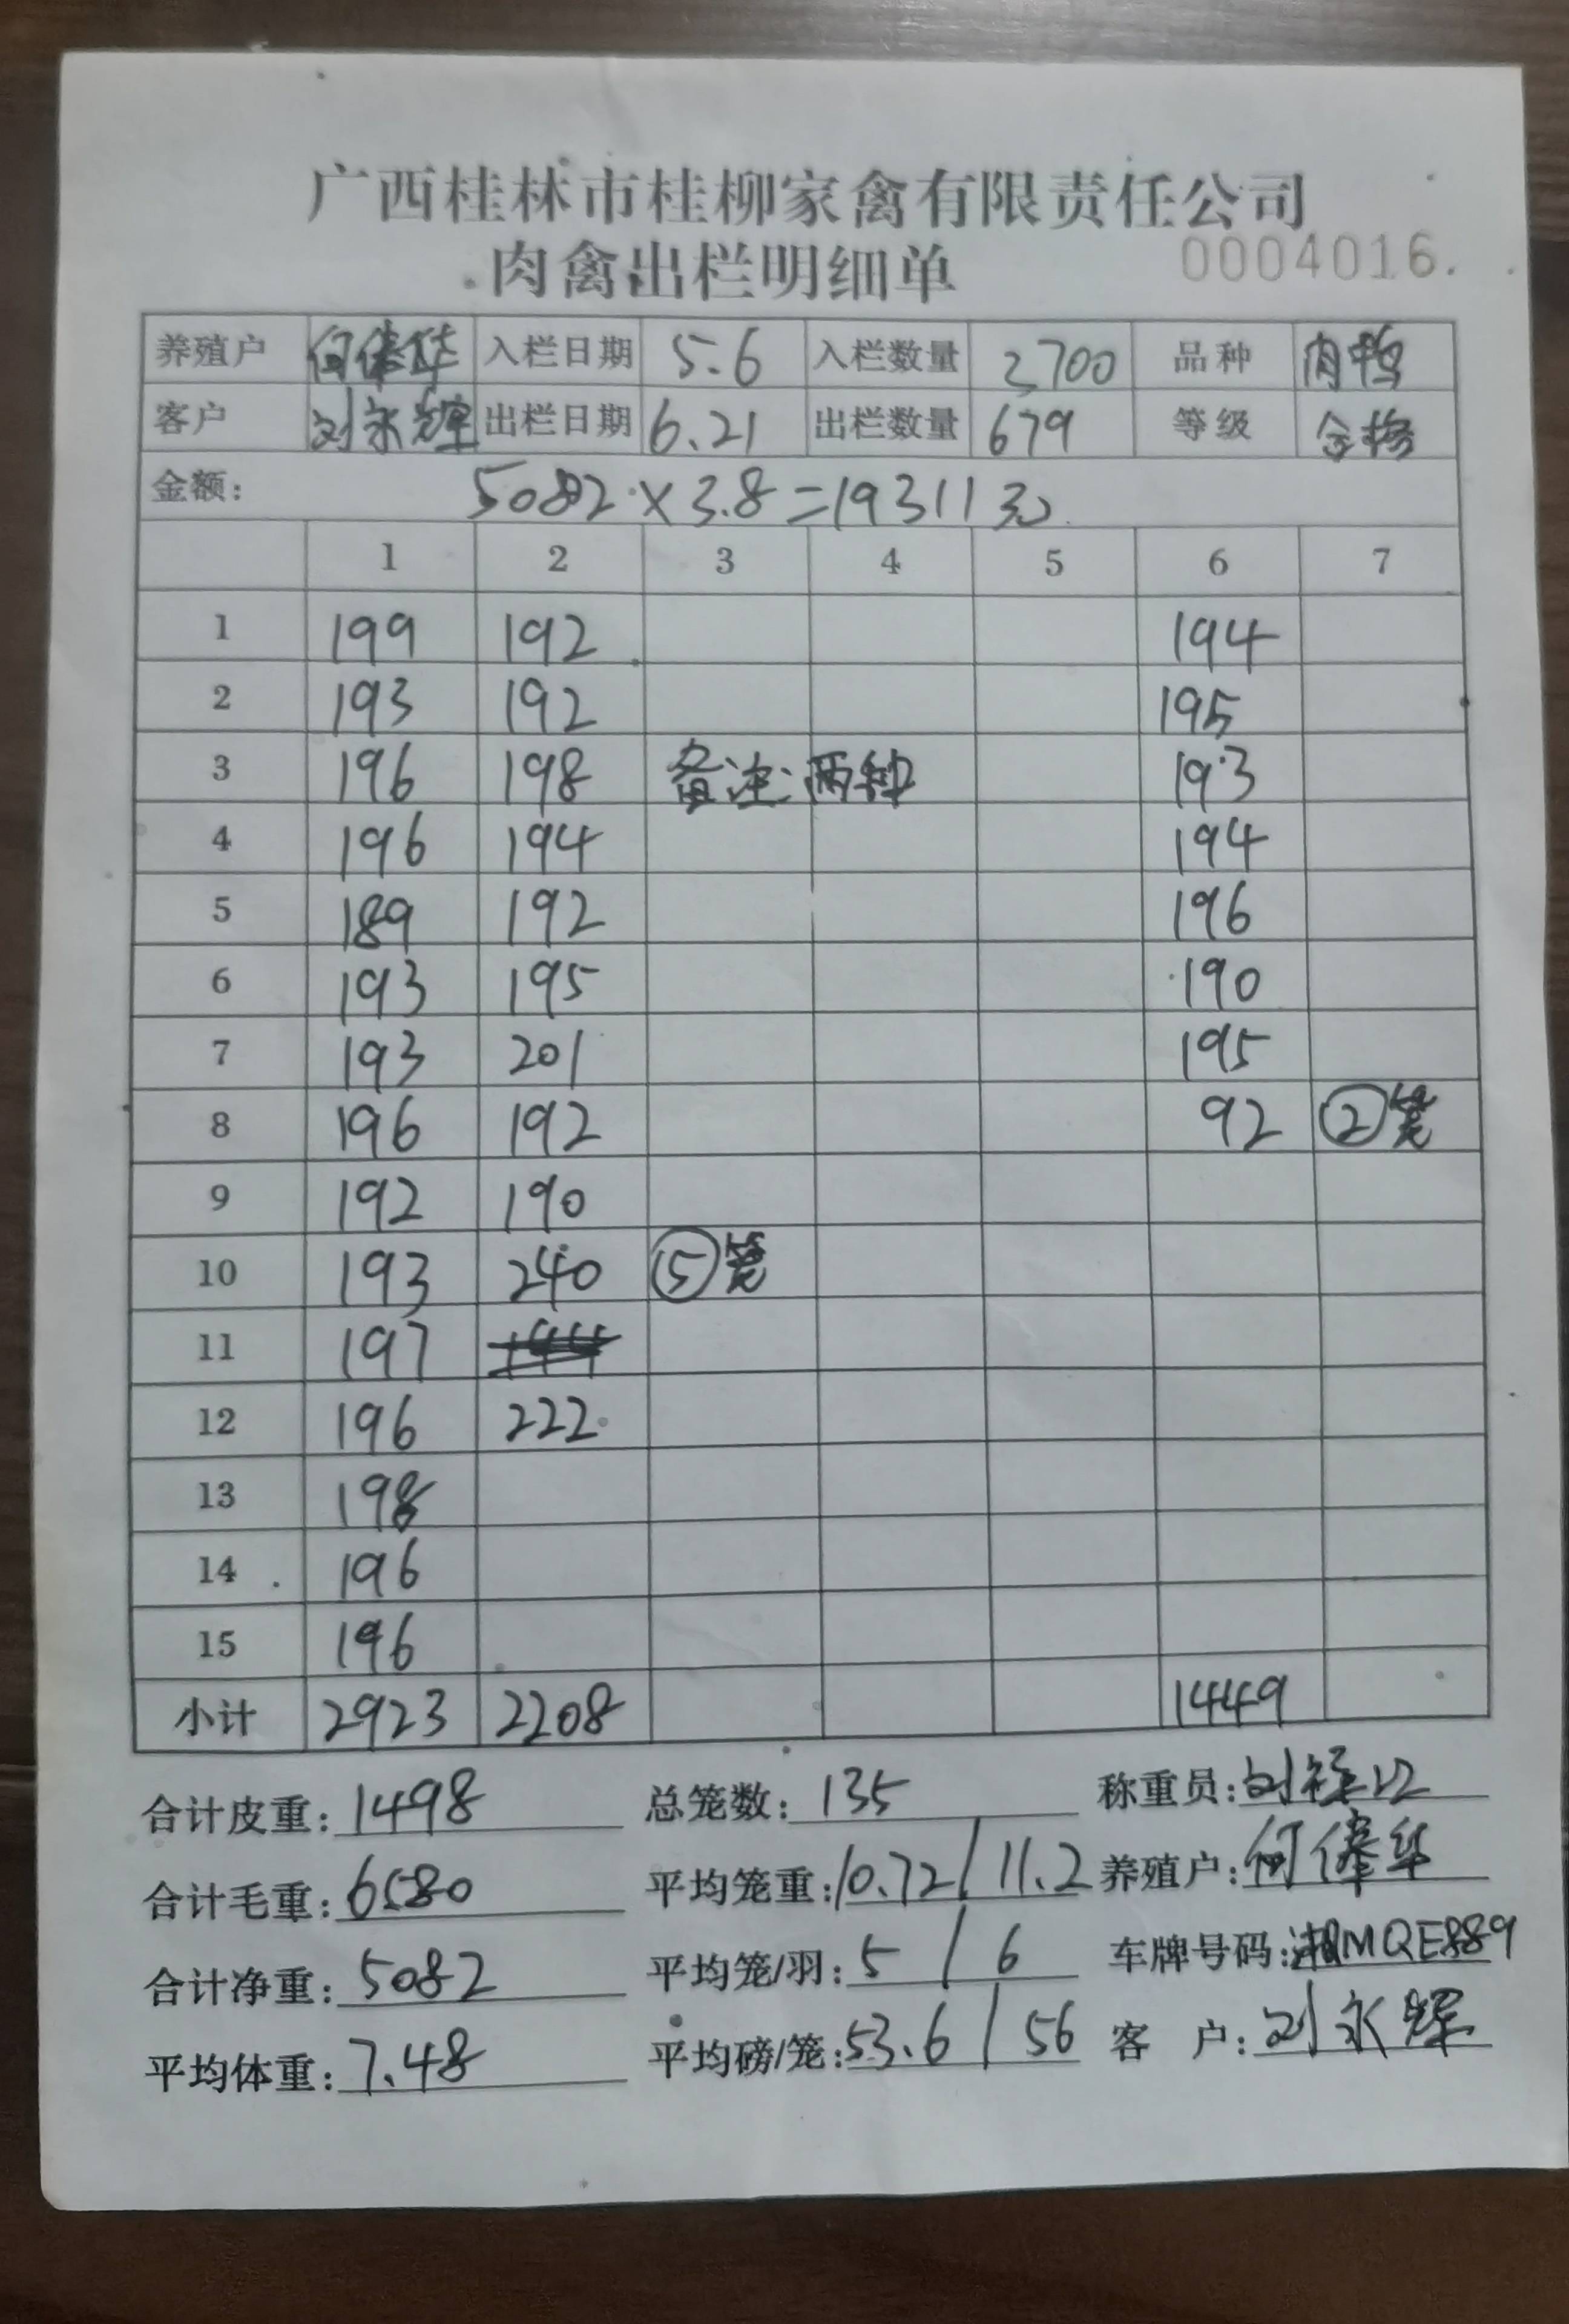 广西桂林市桂柳家禽有限责任公司
肉禽出栏明细单 0004016
养殖户 何俸华 入栏日期 5.6 入栏数量 2700 品种 肉鸭
客户 刘永辉 出栏日期 6.21 出栏数量 679 等级 合格
金额: 5082×3.8=19311元
1 2 3 4 5 6 7
1 199 192 194
2 193 192 195
3 196 198 备注:两种 193
4 196 194 194
5 189 192 196
6 193 195 190
7 193 201 195
8 196 192 92 ②笼
9 192 190
10 193 240 ⑤笼
11 197
12 196 222
13 198
14 196
15 196
小计 2923 2208 1449
合计皮重: 1498 总笼数: 135 称重员: 刘
合计毛重: 6580 平均笼重: 10.72/11.2 养殖户: 何俸华
合计净重: 5082 平均笼/羽: 5/6 车牌号码: 湘MQE889
平均体重: 7.48 平均磅/笼: 53.6/56 客户: 刘永辉